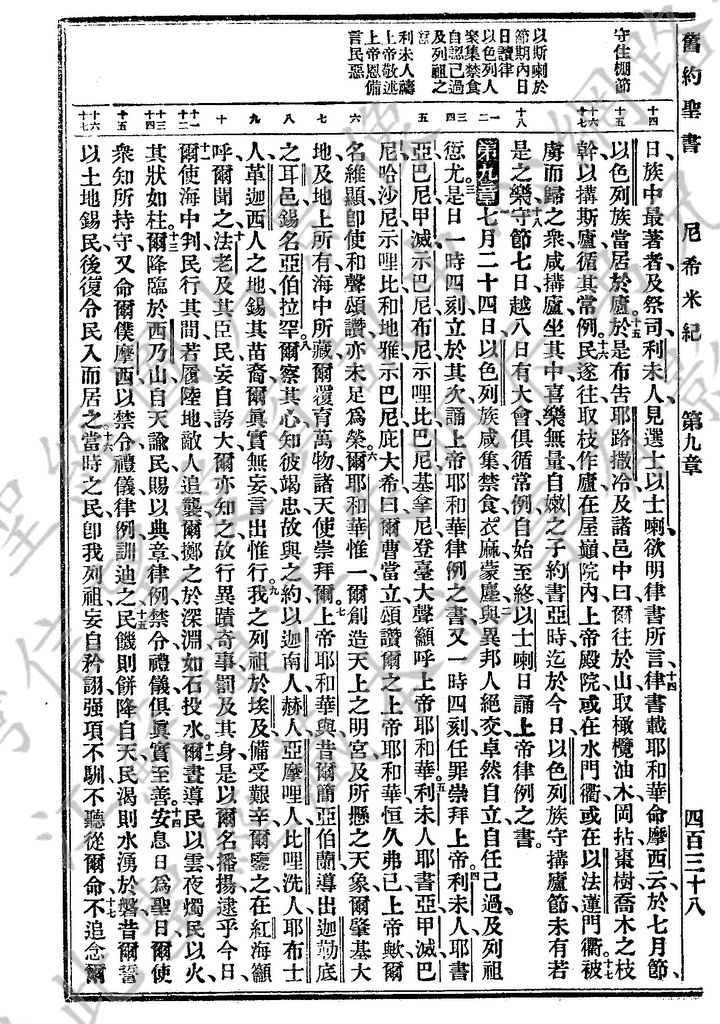 舊約聖書 尼希米紀 第九章 四百三十八
守住棚節
以斯喇於
節期內日
日讀律
以色列人
聚集禁食
自認己過
及列祖之
愆
利未人禱
上帝敬述
上帝恩備
言民惡
十四 日族中最著者及祭司利未人見選士以士喇欲明律書所言十四律書載耶和華命摩西云於七月節
十五 以色列族當居於廬十五於是布告耶路撒冷及諸邑中曰爾往於山取橄欖油木岡拈棗樹喬木之枝
十六 十七 幹以搆斯廬循其常例十六民遂往取枝作廬在屋巔院內上帝殿院或在水門衢或在以法蓮門衢十七被
虜而歸之衆咸搆廬坐其中喜樂無量自嫩之子約書亞時迄於今日以色列族守搆廬節未有若
十八 是之樂十八守節七日越八日有大會俱循常例自始至終以士喇日誦上帝律例之書
一 二 第九章 七月二十四日以色列族咸集禁食衣麻蒙塵二與異邦人絕交卓然自立自任己過及列祖
三 四 愆尤三是日一時四刻立於其次誦上帝耶和華律例之書又一時四刻任罪崇拜上帝四利未人耶書
五 亞巴尼甲滅示巴尼布尼示哩比巴尼基拿尼登臺大聲籲呼上帝耶和華五利未人耶書亞甲滅巴
尼哈沙尼示哩比和地雅示巴尼庇大希曰爾曹當立頌讚爾之上帝耶和華恒久弗已上帝歟爾
六 名維顯卽使和聲頌讚亦未足爲榮六爾耶和華惟一爾創造天上之明宮及所懸之天象爾肇基大
七 地及地上所有海中所藏爾覆育萬物諸天使崇拜爾七上帝耶和華與昔爾簡亞伯蘭導出迦勒底
八 之耳邑錫名亞伯拉罕八爾察其心知彼竭忠故與之約以迦南人赫人亞摩哩人比哩洗人耶布士
九 人革迦西人之地錫其苗裔爾眞實無妄言出惟行九我之列祖於埃及備受艱辛爾鑒之在紅海籲
十 呼爾聞之十法老及其臣民妄自誇大爾亦知之故行異蹟奇事罰及其身是以爾名播揚遠乎今日
十一 十二 十一爾使海中判民行其間若履陸地敵人追襲爾擲之於深淵如石投水十二爾晝導民以雲夜燭民以火
十三 十四 其狀如柱十三爾降臨於西乃山自天諭民賜以典章律例禁令禮儀俱眞實至善十四安息日爲聖日爾使
十五 衆知所持守又命爾僕摩西以禁令禮儀律例訓迪之十五民饑則餅降自天民渴則水湧於磐昔爾誓
十六 十七 以土地錫民後復令民入而居之十六當時之民卽我列祖妄自矜詡强項不馴不聽從爾命十七不追念爾